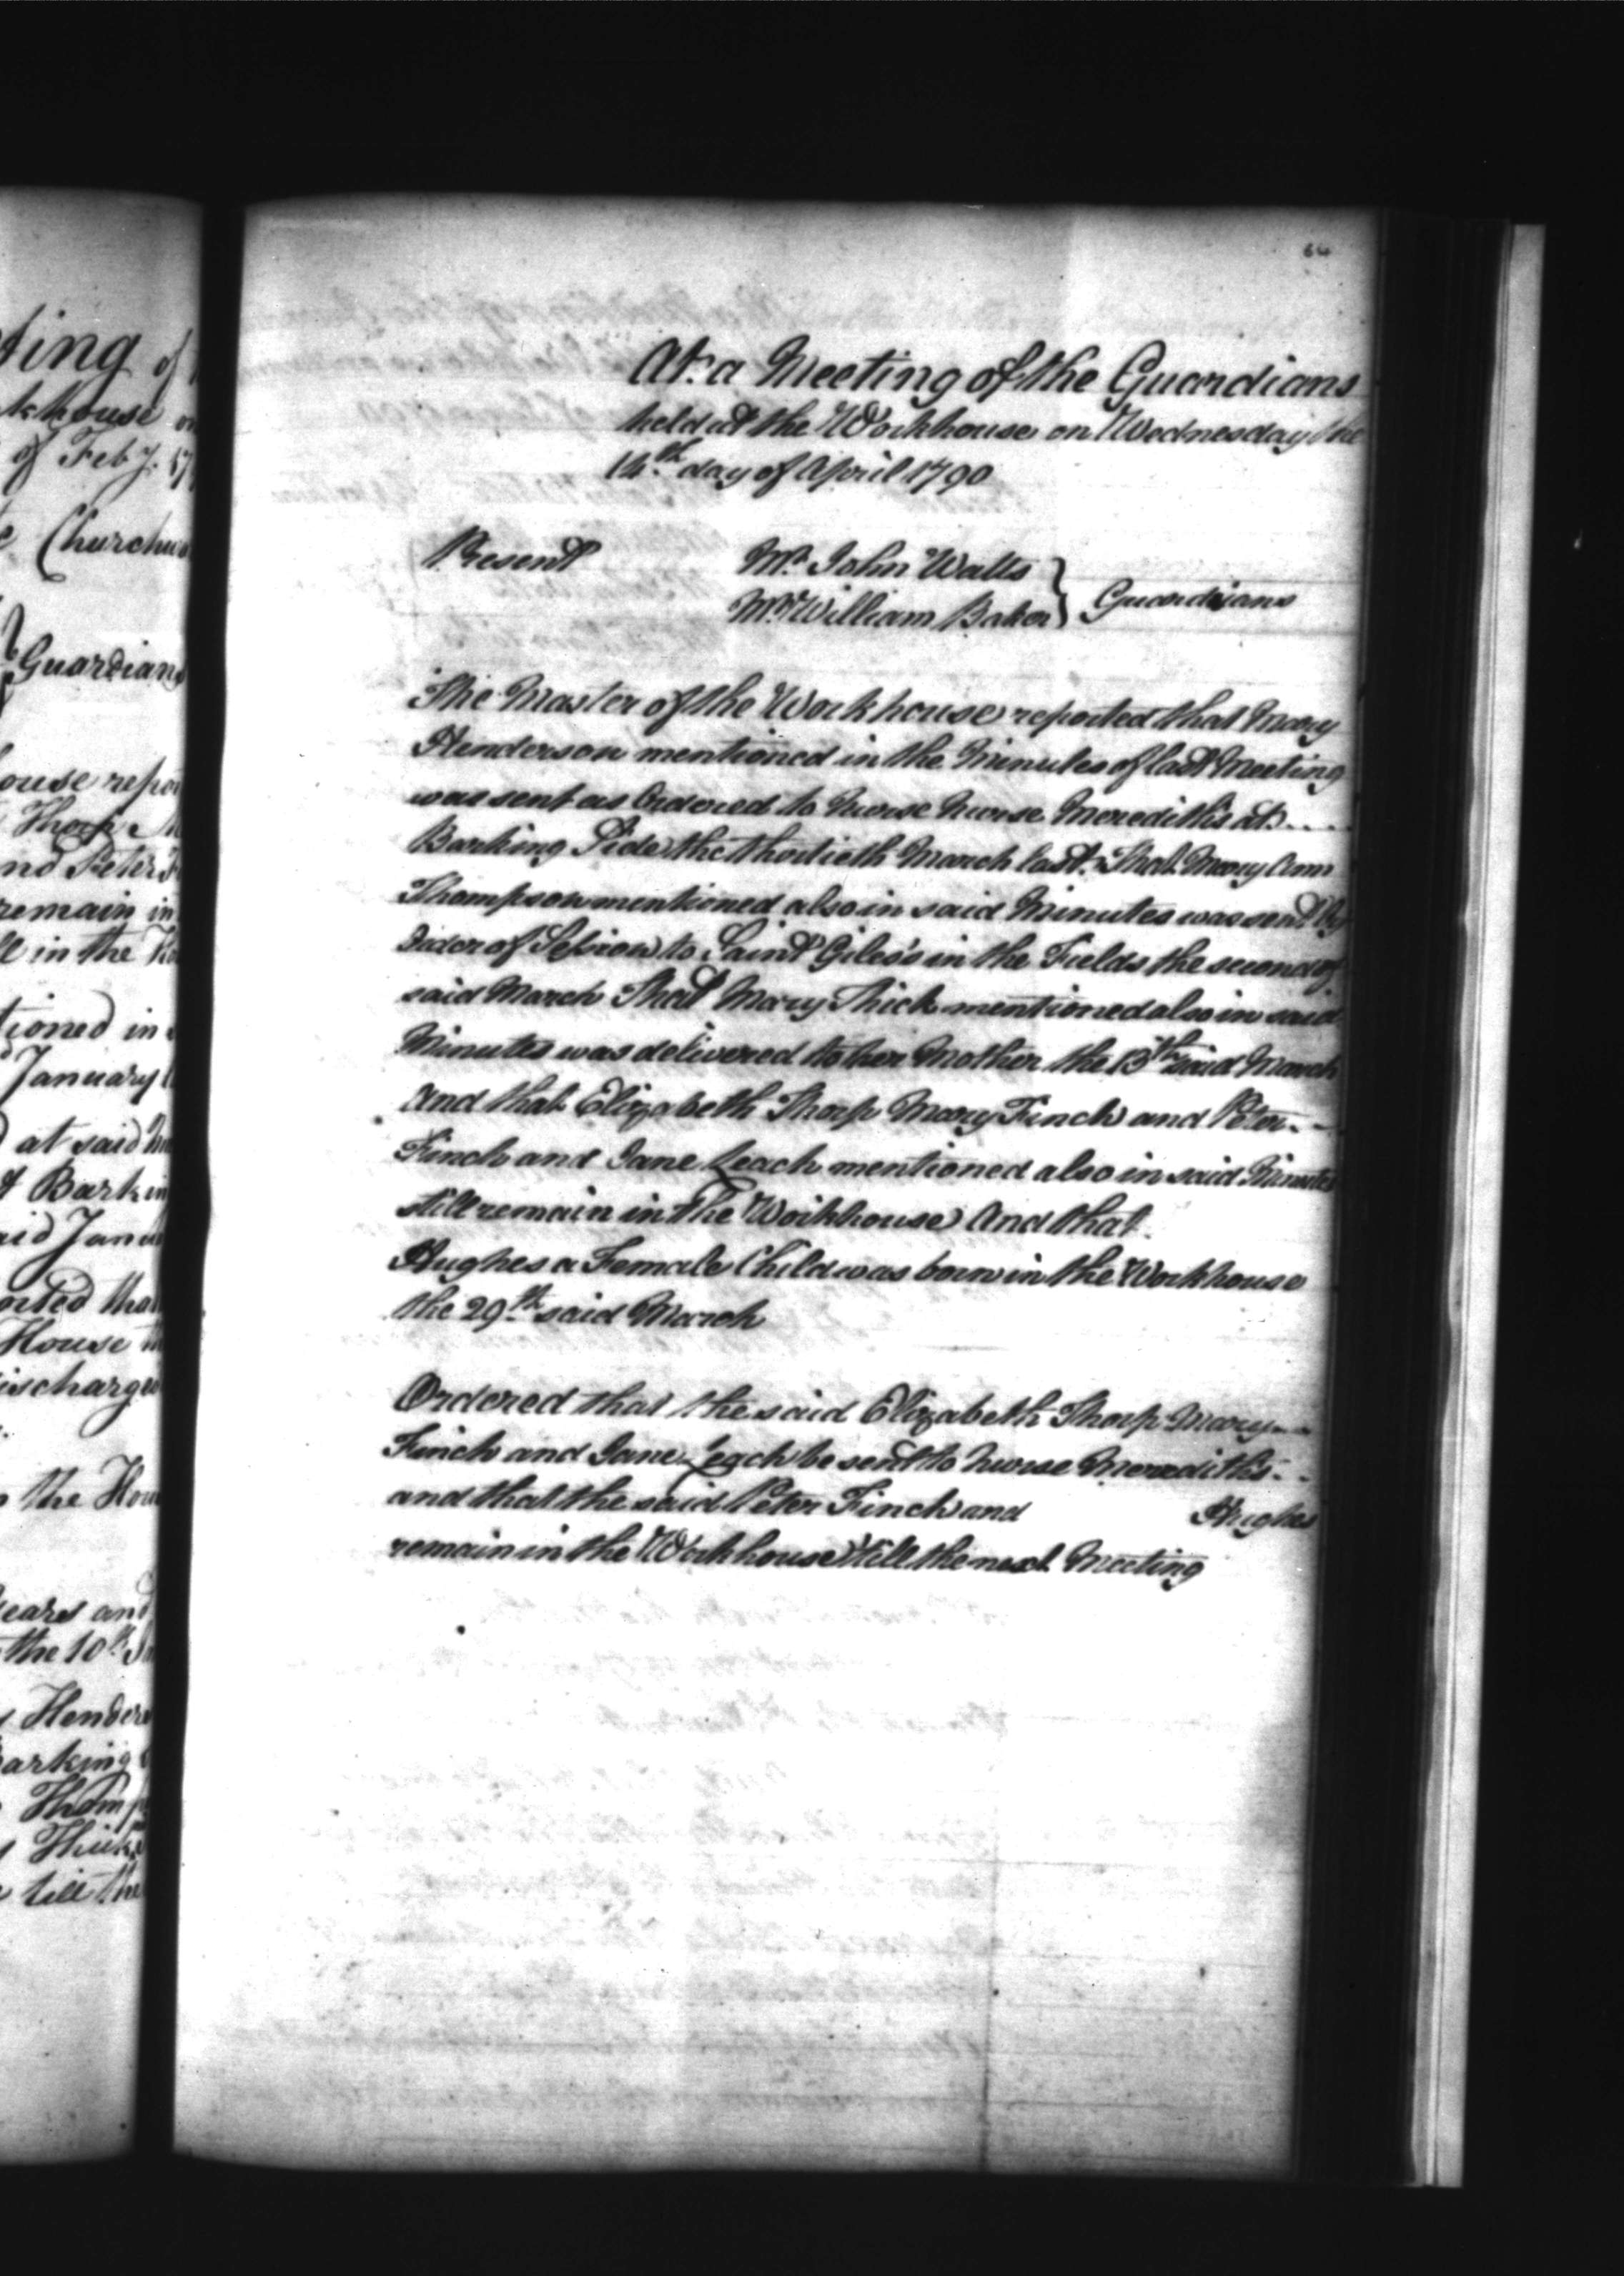 ting of
khouse on
of Feby. 17
Churchw
Guardians
ouse repo
Thorp M
nd Peter F
remain in
ll in the
tioned in
January
at said
of Barkin
aid Janu
orted that
House
ischarged
the Hou
years and
the 10th
Henders
arking
Thomp
Thick
till the
64
At a Meeting of the Guardians
held at the Workhouse on Wednesday the
14th day of April 1790
Present Mr. John Watts
Mr. William Baker } Guardians
The Master of the Workhouse reported that Mary
Henderson mentioned in the Minutes of last Meeting
was sent as Ordered to Nurse Nurse Merediths at
Barking Side the thirtieth March last. That Mary Ann
Thompson mentioned also in said Minutes was sent by
Order of Session to Saint Giles's in the Fields the second of
said March That Mary Thick mentioned also in said
Minutes was delivered to her Mother the 13th said March
And that Elizabeth Thorp Mary Finch and Peter
Finch and Jane Leach mentioned also in said Minutes
still remain in the Workhouse And that
Hughes a Female Child was born in the Workhouse
the 29th said March
Ordered that the said Elizabeth Thorp Mary
Finch and Jane Leach be sent to Nurse Merediths
and that the said Peter Finch and Hughes
remain in the Workhouse till the next Meeting